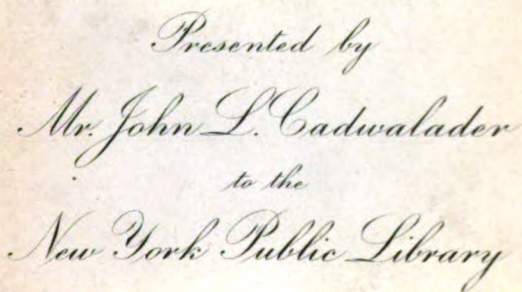 Presented by
Mr. John L. Cadwalader
to the
New York Public Library